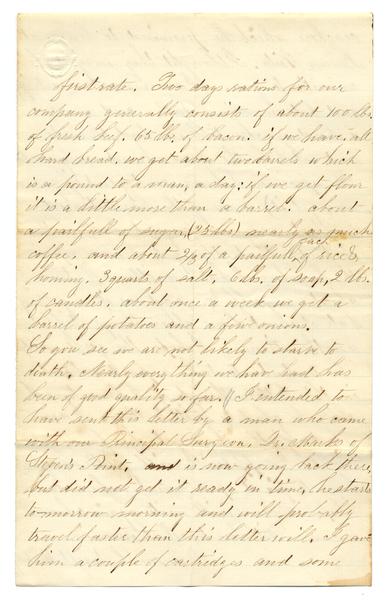 first rate. Two days rations for our
company generally consists of about 100 lbs.
of fresh beef. 65 lbs. of bacon. if we have all
hard bread. we get about two barrels which
is a pound to a man, a day: if we get flour
it is a little more than a barrel. about
a pailfull of sugar, (25 lbs) nearly as much
coffee. and about 2/3 of a pailfull, each of rice &
hominy. 3 quarts of salt. 6 lbs. of soap, 2 lbs.
of candles. about once a week we get a
barrel of potatoes and a few onions.
So you see we are not likely to starve to
death. Nearly everything we have had has
been of good quality so far. // I intended to
have sent this letter by a man who came
with our Principal Surgeon, Dr. Marks of
Point. and is now going back there,
but did not get it ready in time, he starts
to-morrow morning and will probably
travel faster than this letter will. I gave
him a couple of cartridges and some